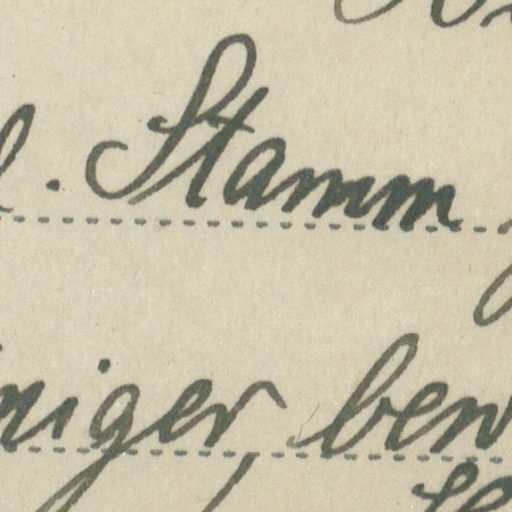 . Stamm
niger ben